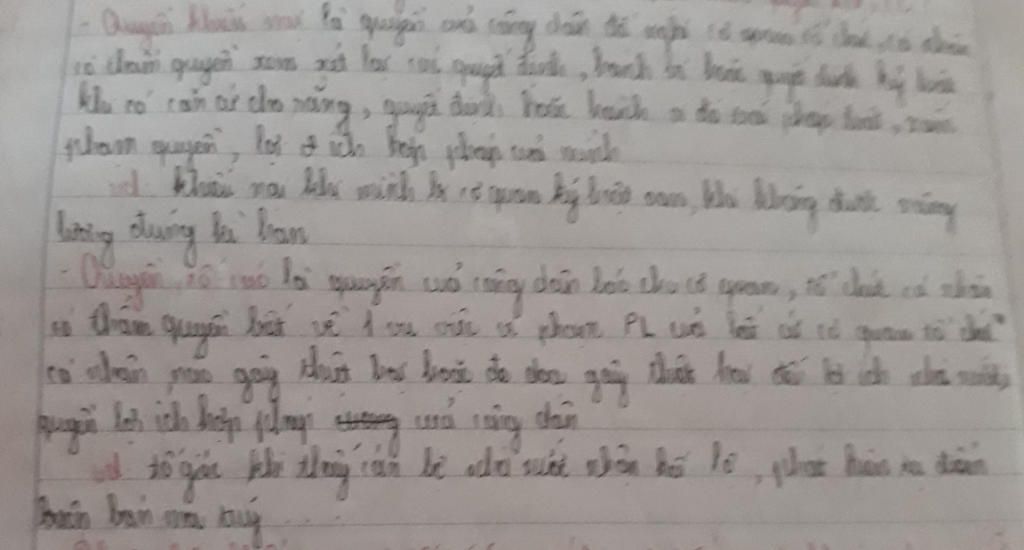 - Quyền khiếu nại là quyền của công dân đề nghị cơ quan tổ chức, cá nhân
có thẩm quyền xem xét lại các quyết định, hành vi hoặc quyết định kỷ luật
khi có căn cứ cho rằng, quyết định hoặc hành vi đó trái pháp luật, xâm
phạm quyền, lợi ích hợp pháp của mình
vd khiếu nại khi mình bị cơ quan kỷ luật oan, khi không được nâng
lương đúng kì hạn
- Quyền tố cáo là quyền của công dân báo cho cơ quan, tổ chức cá nhân
có thẩm quyền biết về 1 vụ việc vi phạm PL của bất cứ cơ quan tổ chức
cá nhân nào gây thiệt hại hoặc đe dọa gây thiệt hại đến lợi ích nhà nước,
quyền lợi ích hợp pháp của công dân
vd tố giác khi thấy cán bộ nhà nước nhận hối lộ, phát hiện ra
buôn bán ma tuý